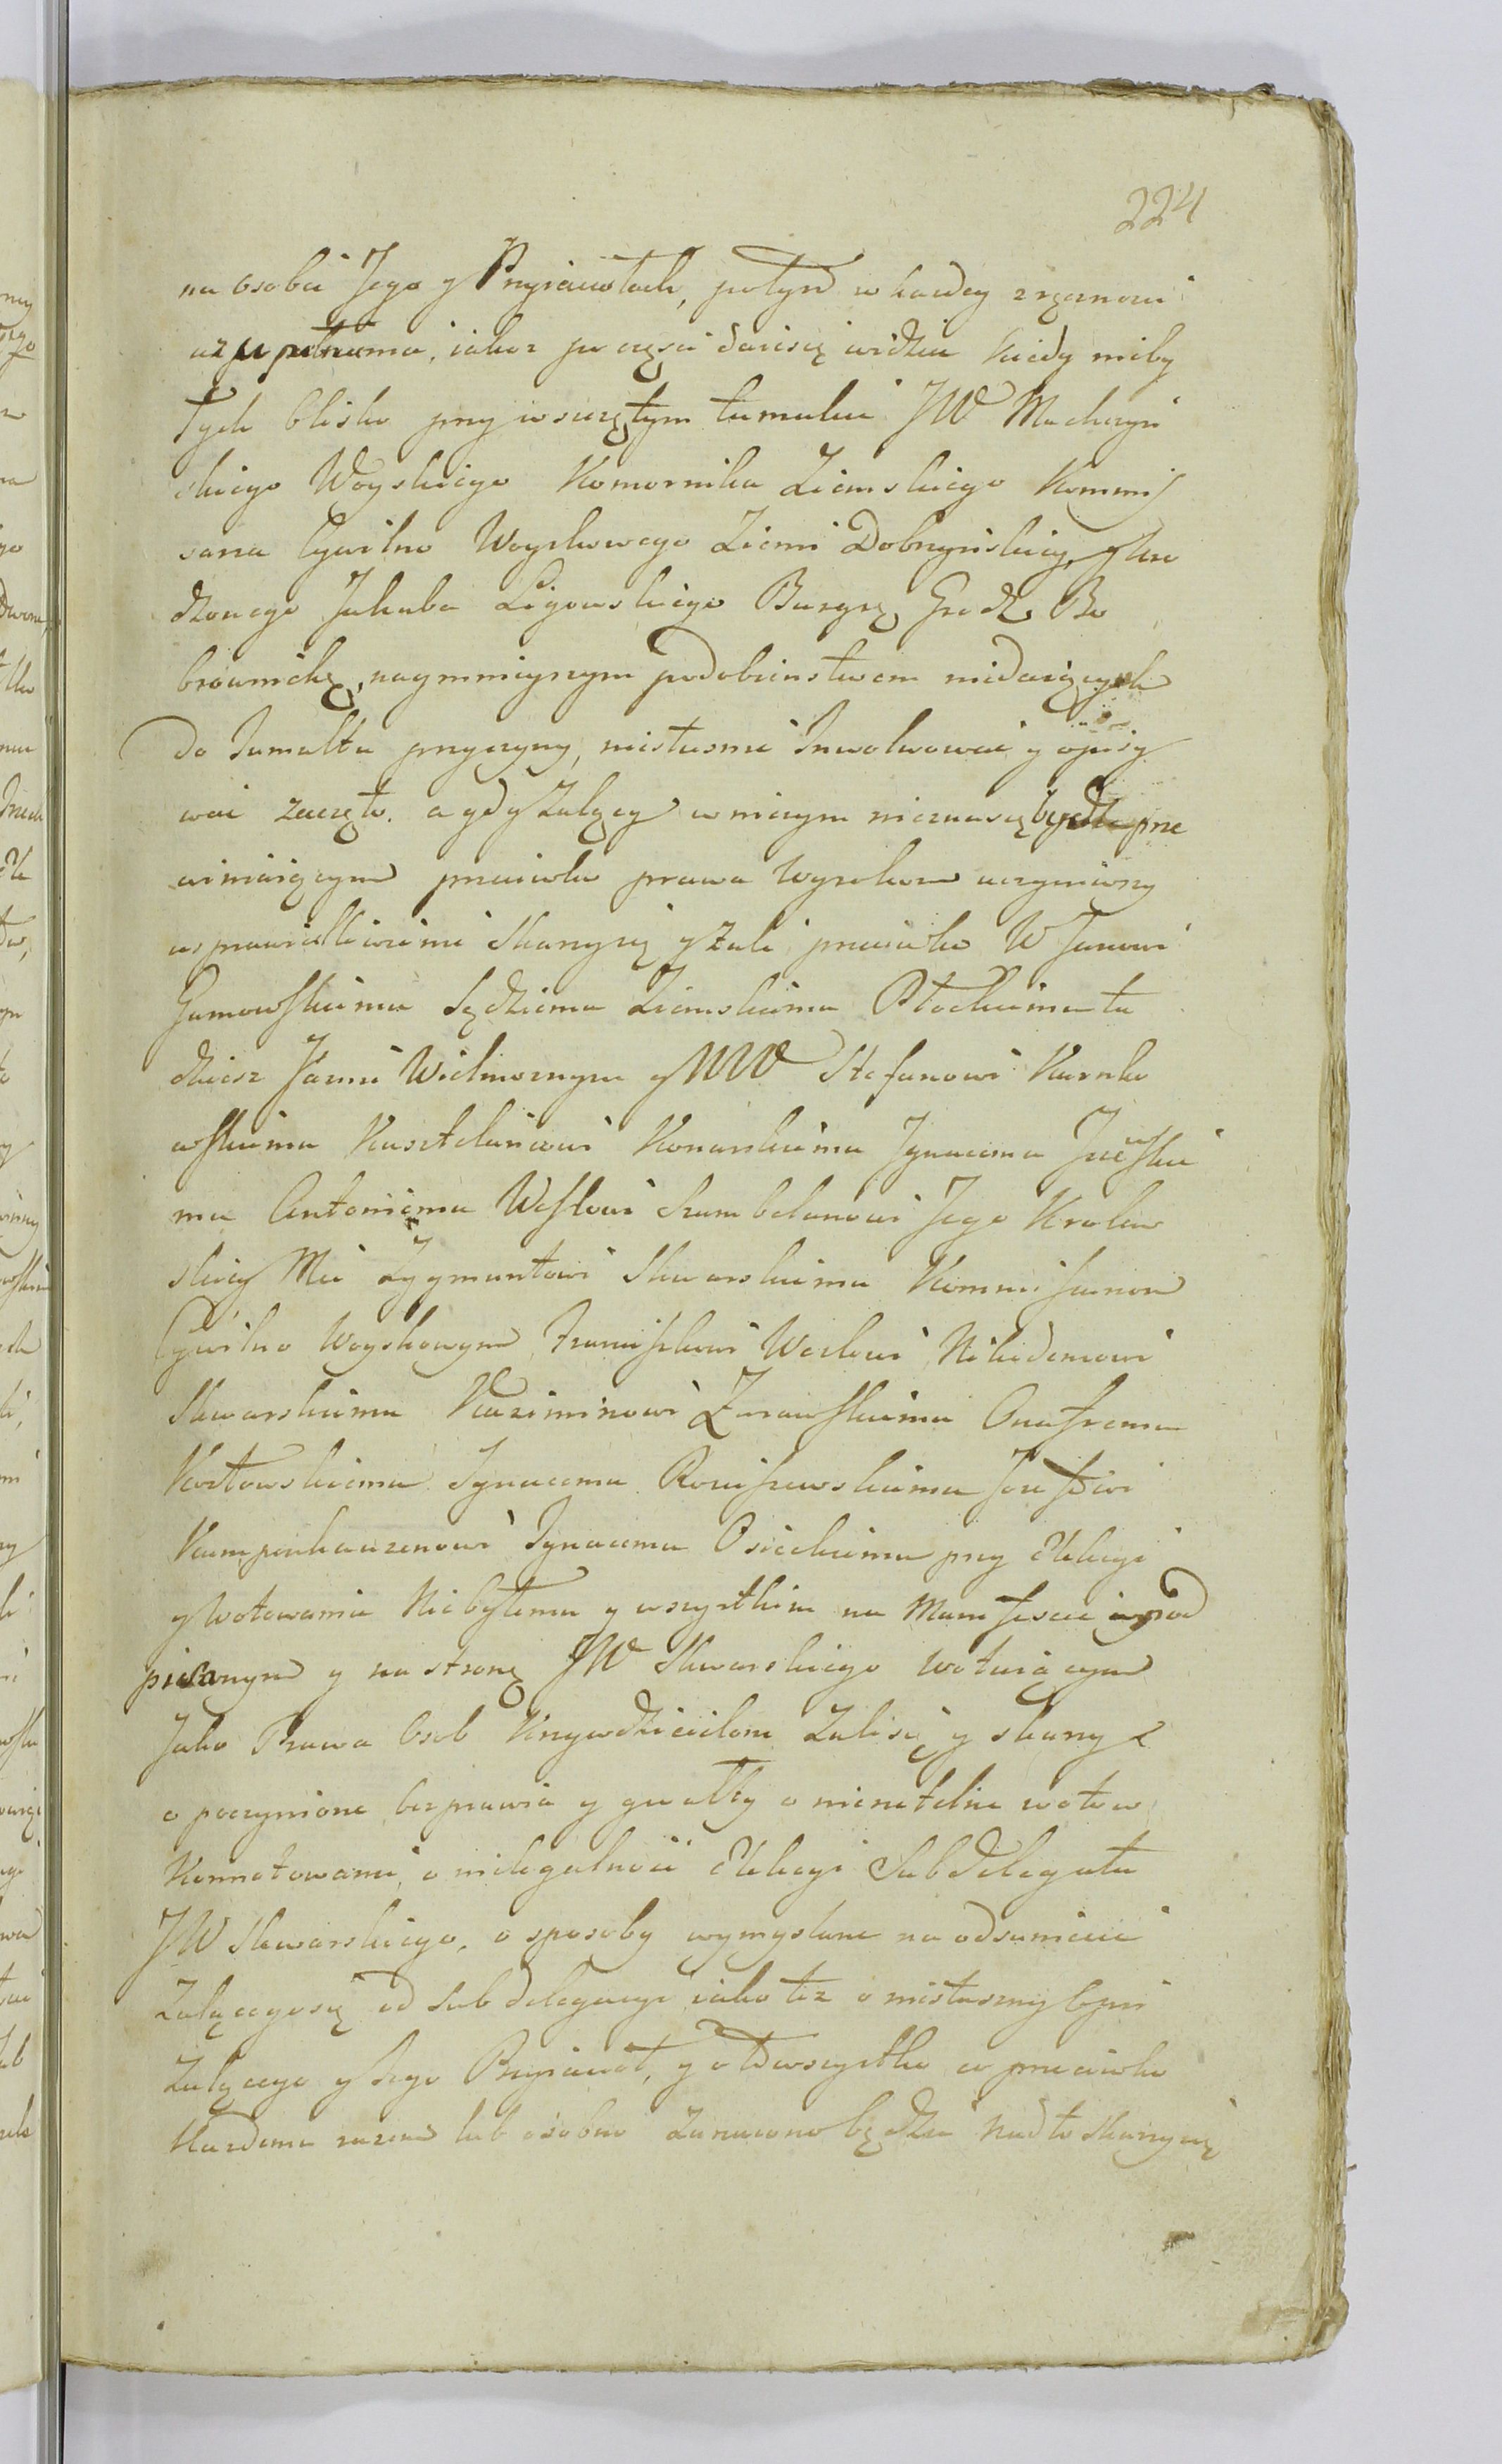 224
na osobie Jego y Przyiaciołach, potym w każdey ręcznosci
uzupełniema, iakoz po częsci daiesię widzieć kiedy nieby
łych blisko przy wszczętym tumulcie JW Macherzyń
skiego Woyskiego Komornika Ziemskiego Kommis
sarza Cywilno Woyskowego Ziemi Dobrzyńskiey, y Uro
dzonego Jakuba Ligowskiego Burgrę Grodz Bo
brownickę, naymnieyszym podobienstwem niedaiących
do Tumultu przyczyny, niesłusznie Inwolwować y opisy
wać zaczęto. a gdy Żalący w niczym nieznasię bydz prze
winiaiącym przeciwko prawa Wyrokom uczyniony
usprawiedliwienie Skarzysię y Żali przeciwko W Janowi
Gumowskiemu Sędziemu Ziemskiemu Płockiemu tu
dziesz Jasnie Wielmoznym y WW Stefanowi Karnko
wskiemu Kasztelanowi Konarskiemu Ignacemu Jeżewskie
mu Antoniemu Wesslowi Szambelanowi Jego Krolew
skiey Mci Zygmuntowi Skwarskiemu Kommissarzom
Cywilno Woyskowym, Franciszkowi Weslowi, Nikodemowi
Skwarskiemu Kazimirzowi Zurawskiemu Onufremu
Kozłowskiemu Ignacemu Rosciszewskiemu Jozefowi
Kampenhauzenowi Ignacemu Osieckiemu przy Elekcyi
y Wotowaniu Niebyłemu y wszystkim na Manifescie wypod
pisanym y na stronę JW Skwarskiego wotuiącym
Jako Prawa Osob Krzywdzicielom Żalisię y skarzy
o poczynione bezprawia y gwałty o nierzetelne wotow
Konnotowanie, o nielegalność Elekcyi Subdelegata
JW Skwarskiego, o sposoby wymyslane na odsuniecie
Żalącegosię od Subdelegacyi iako też o niesłuszny Opis
Żalącego y Jego Przyiacioł, y o to wszystko co przeciwko
Kazdemu razem lub osobno Zarzucono będzie nadto Skarzysię